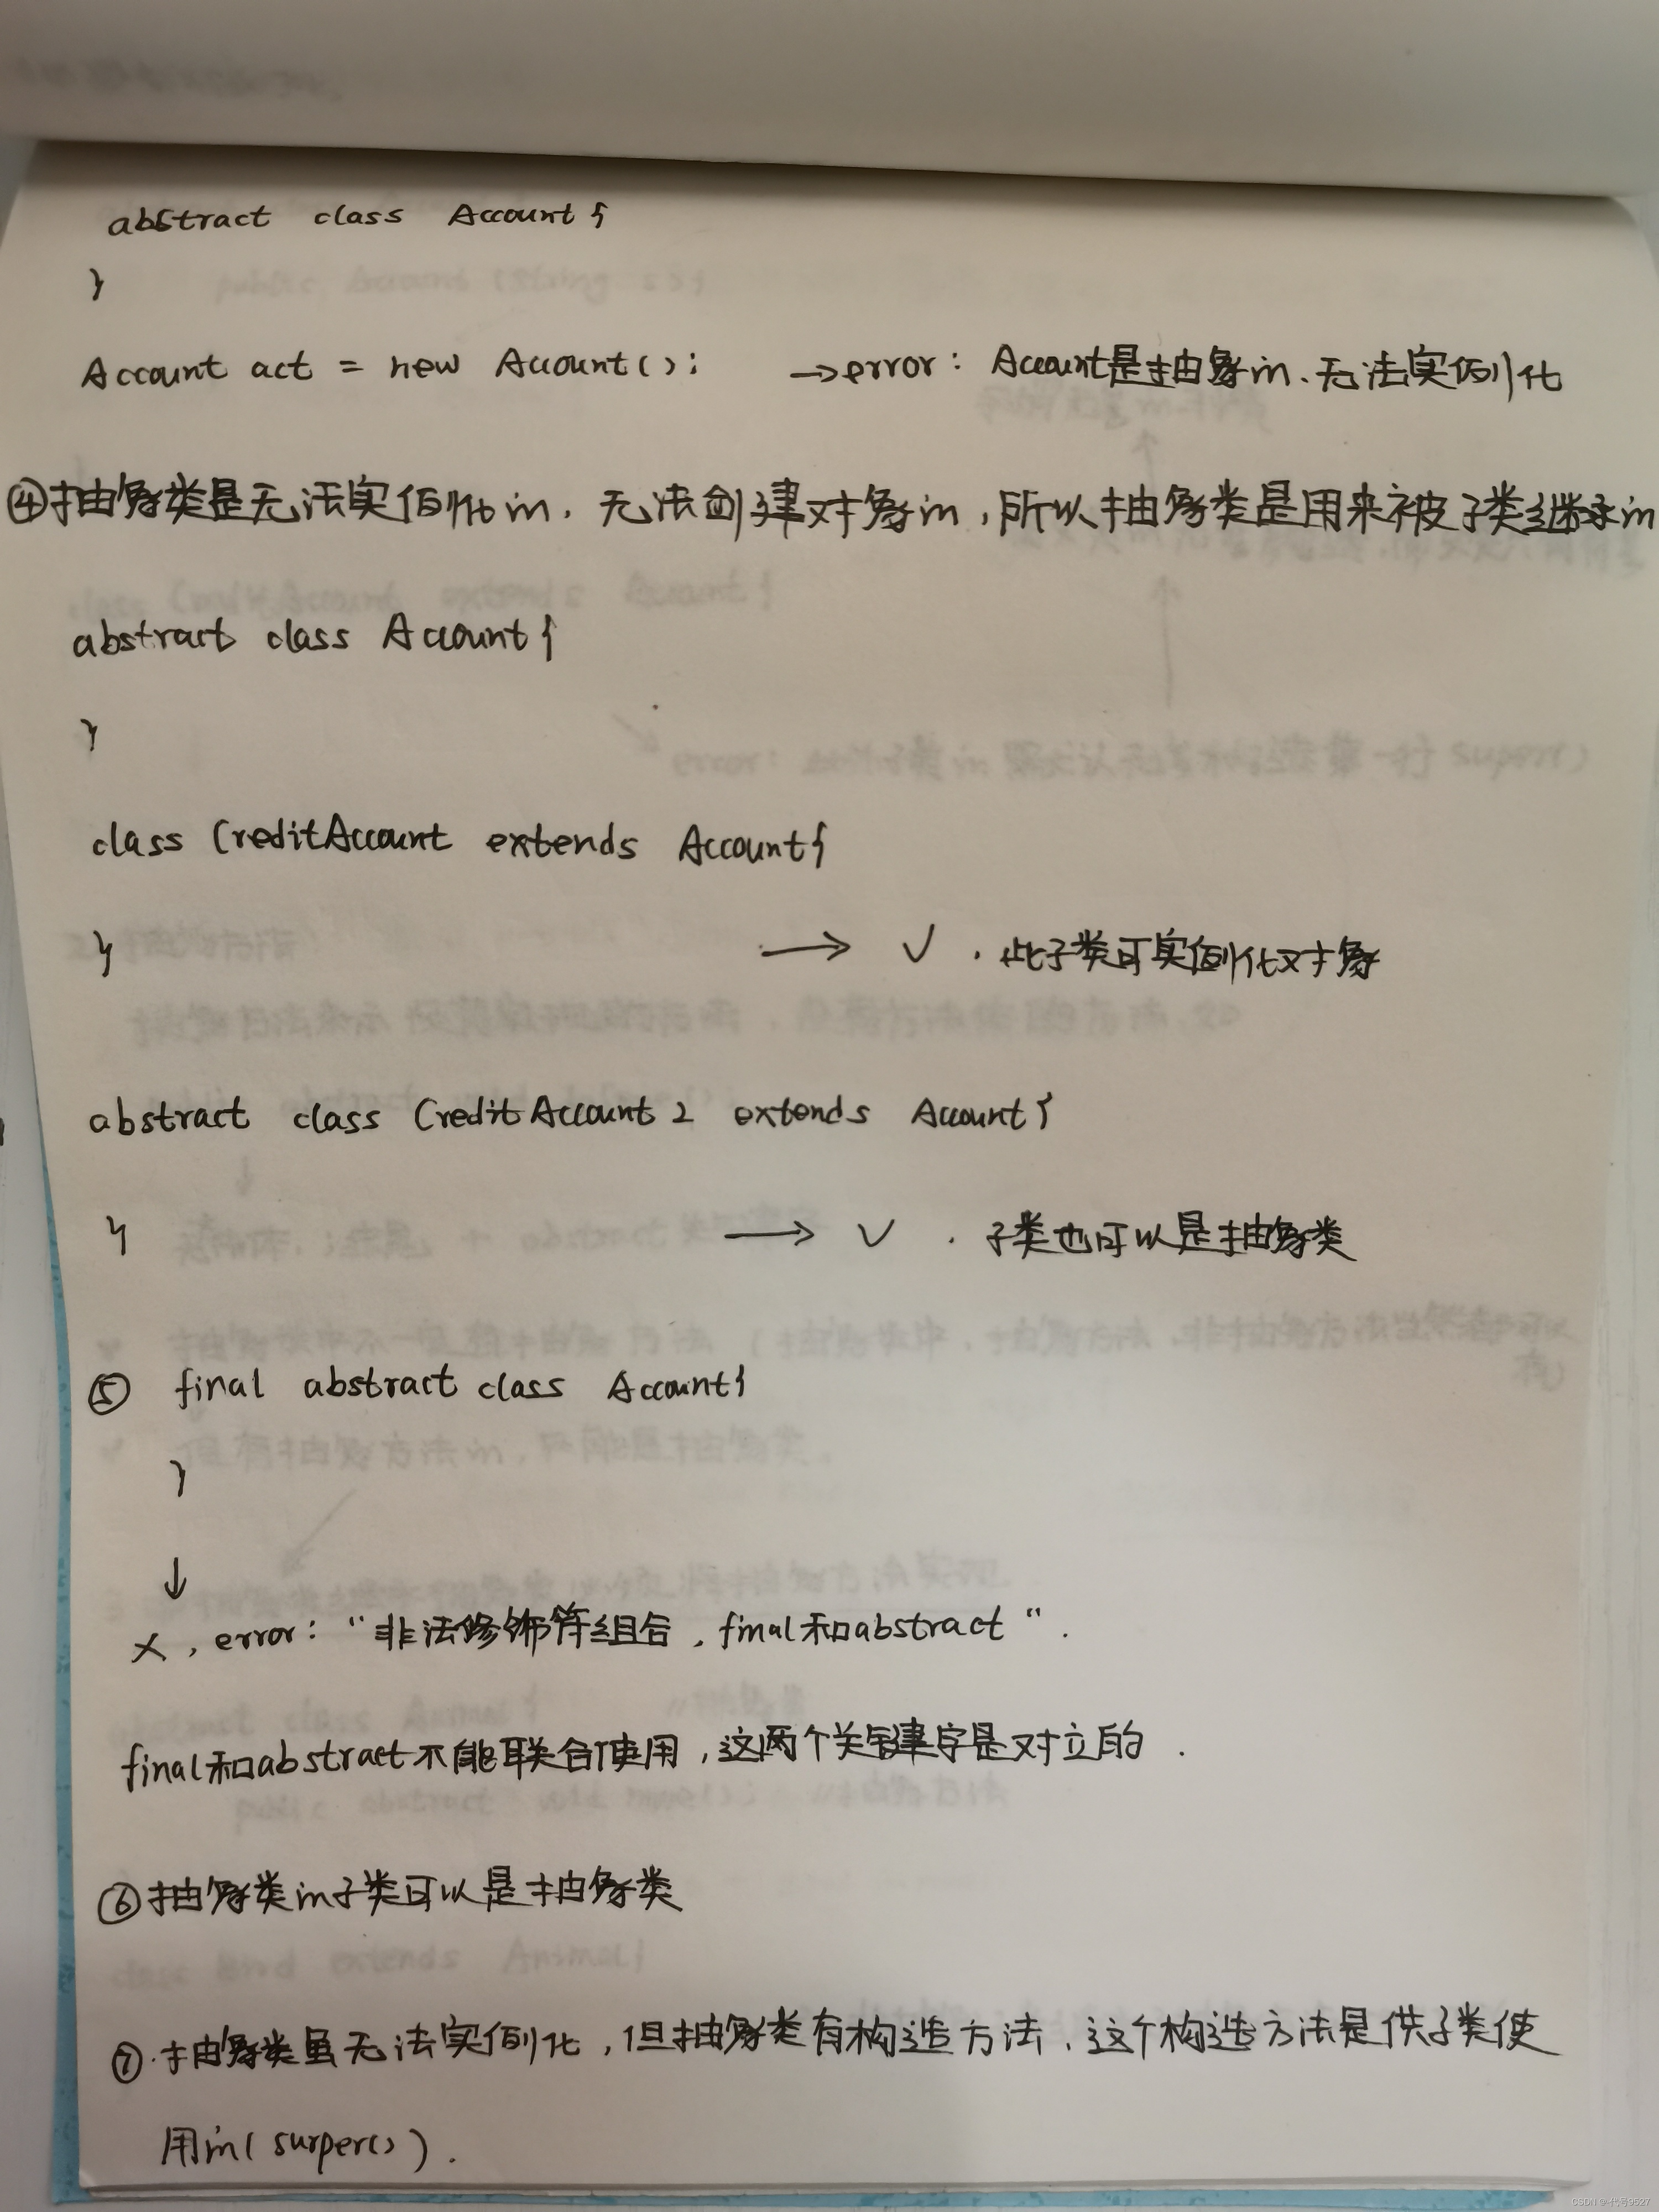 abstract class Account{
}
Account act = new Account(); →error: Account是抽象的、无法实例化
④抽象类是无法实例化的，无法创建对象的，所以抽象类是用来被子类继承的
abstract class Account{
}
class CreditAccount extends Account{
} → √ ，此子类可实例化对象
abstract class CreditAccount2 extends Account{
} → √ ，子类也可以是抽象类
⑤ final abstract class Account{
}
↓
×，error: “非法修饰符组合，final和abstract“．
final和abstract不能联合使用，这两个关键字是对立的．
⑥抽象类的子类可以是抽象类
⑦．抽象类虽无法实例化，但抽象类有构造方法，这个构造方法是供子类使
用的(surper()).
CSDN @代号9527